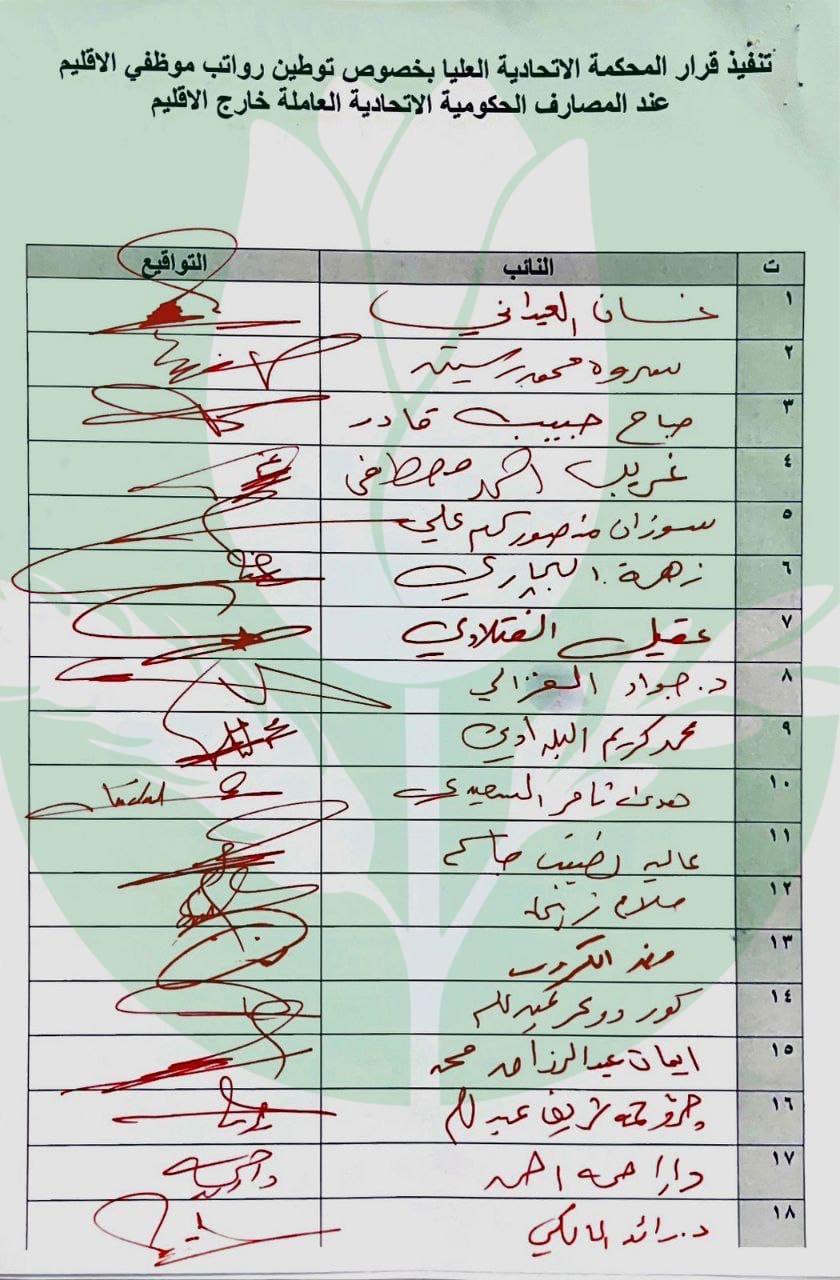 تنفيذ قرار المحكمة الاتحادية العليا بخصوص توطين رواتب موظفي الاقليم
عند المصارف الحكومية الاتحادية العاملة خارج الاقليم
ت النائب التواقيع
١ غسان العيداني
٢ سروه محمد رشيد
٣ صباح حبيب قادر
٤ غريب احمد مصطفى
٥ سوزان منصور كرم علي
٦ زهرة البجاري
٧ عقيل الفتلاوي
٨ د. جواد الغزالي
٩ محمد كريم البلداوي
١٠ هدى ثامر السعيدي
١١ عالية نصيف جاسم
١٢
١٣ مضر الكروي
١٤
١٥ ايمان عبدالرزاق محمد
١٦ شريف
١٧ دارا حمه احمد
١٨ د. رائد المالكي